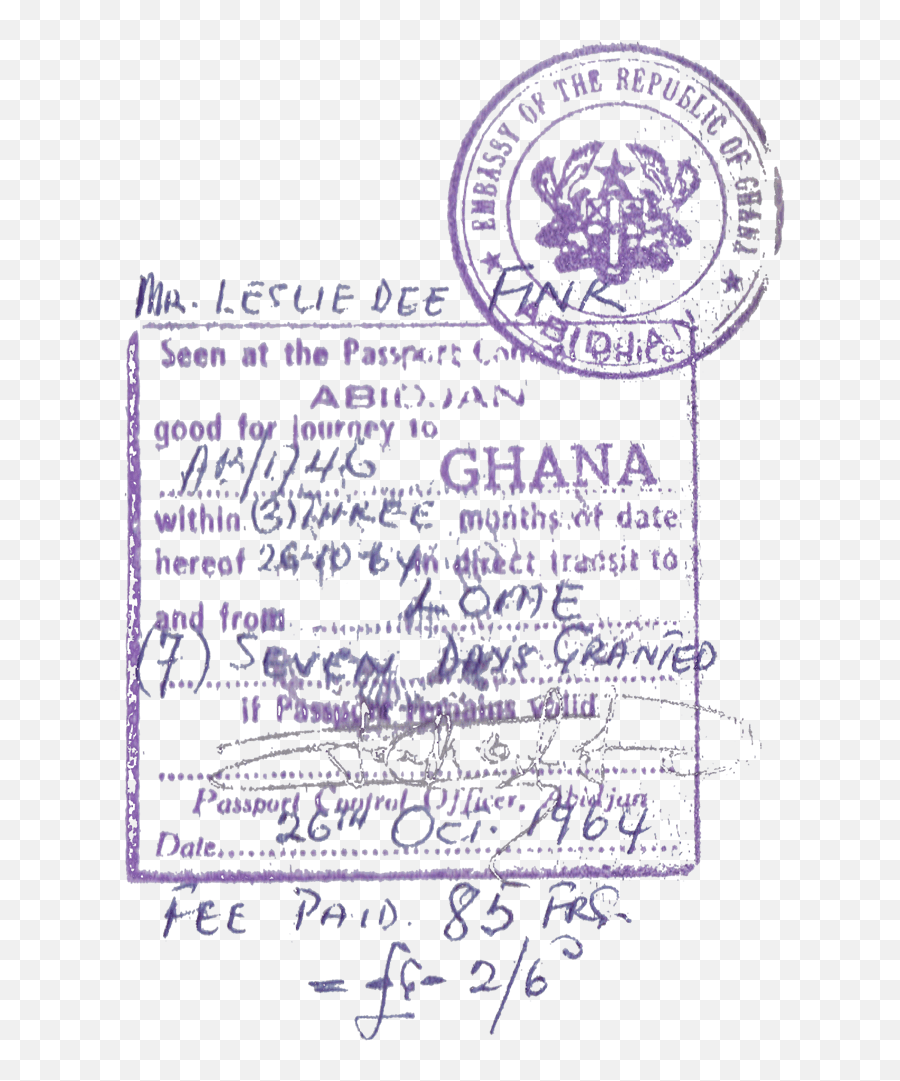 EMBASSY OF THE REPUBLIC OF GHANA
ABIDJAN
MR. LESLIE DEE FINK
Seen at the Passport Control Office
ABIDJAN
good for journey to
AR/1746 GHANA
within (3) THREE months of date
hereof 26-10-64 in direct transit to
and from LOME
(7) SEVEN DAYS GRANTED
if Passport remains valid
Passport Control Officer, Abidjan
Date 26TH OCT. 1964
FEE PAID. 85 FRS.
= £G- 2/6D